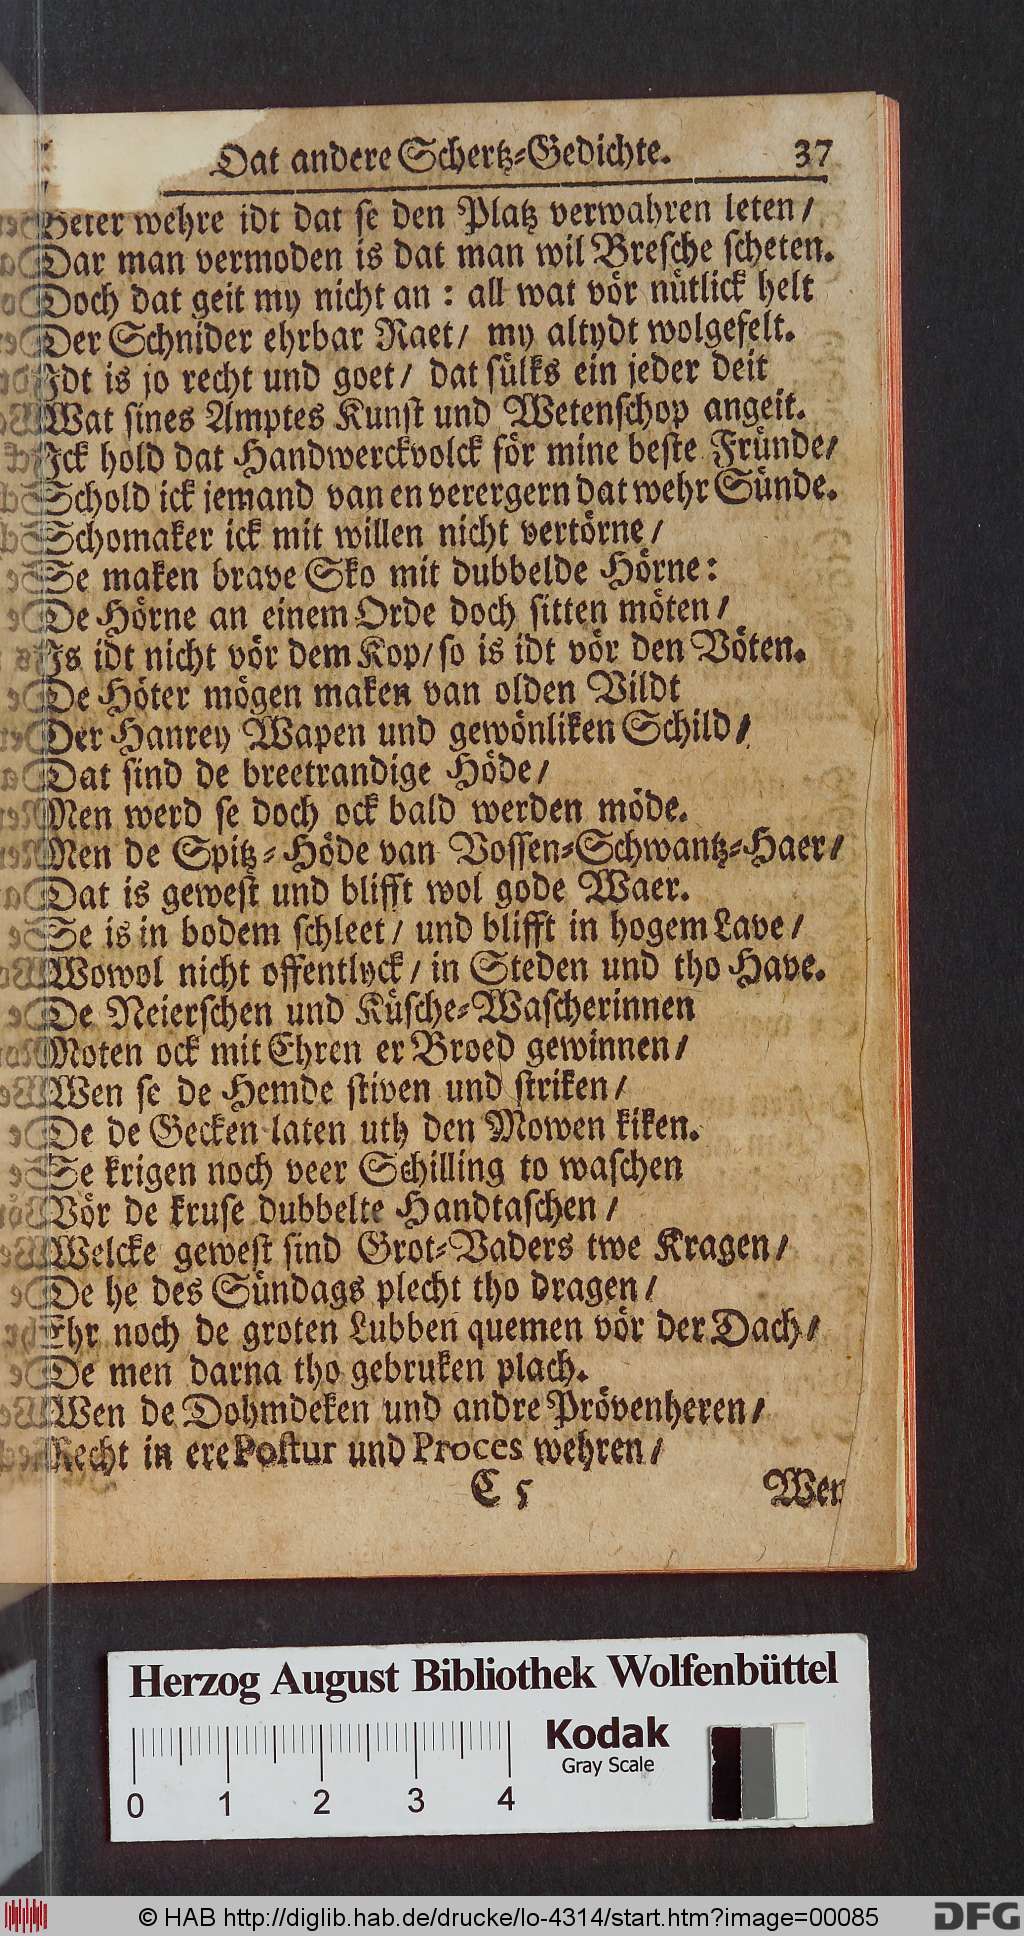 Dat andere Schertz-Gedichte. 37
Beter wehre idt dat se den Platz verwahren leten /
Dar man vermoden is dat man wil Bresche scheten.
Doch dat geit my nicht an : all wat vör nütlick helt
Der Schnider ehrbar Raet / my altydt wolgefelt.
Idt is jo recht und goet / dat sülks ein jeder deit
Wat sines Amptes Kunst und Wetenschop angeit.
Ick hold dat Handwerckvolck för mine beste Fründe /
Schold ick jemand van en verergern dat wehr Sünde.
Schomaker ick mit willen nicht vertörne /
Se maken brave Sko mit dubbelde Hörne :
De Hörne an einem Orde doch sitten möten /
Is idt nicht vör dem Kop / so is idt vör den Vöten.
De Höter mögen maken van olden Vildt
Der Hanrey Wapen und gewönliken Schild /
Dat sind de breetrandige Höde /
Men werd se doch ock bald werden möde.
Men de Spitz-Höde van Vossen-Schwantz-Haer /
Dat is gewest und blifft wol gode Waer.
Se is in bodem schleet / und blifft in hogem Lave /
Wowol nicht offentlyck / in Steden und tho Have.
De Neierschen und Küsche-Wascherinnen
Moten ock mit Ehren er Broed gewinnen /
Wen se de Hemde stiven und striken /
De de Gecken laten uth den Mowen kiken.
Se krigen noch veer Schilling to waschen
Vör de kruse dubbelte Handtaschen /
Welcke gewest sind Grot-Vaders twe Kragen /
De he des Sündags plecht tho dragen /
Ehr noch de groten Lubben quemen vör der Dach /
De men darna tho gebruken plach.
Wen de Dohmdeken und andre Prövenheren /
Recht in ere Postur und Proces wehren /
C 5 Wen
Herzog August Bibliothek Wolfenbüttel
Kodak
Gray Scale
0 1 2 3 4
© HAB http://diglib.hab.de/drucke/lo-4314/start.htm?image=00085
DFG